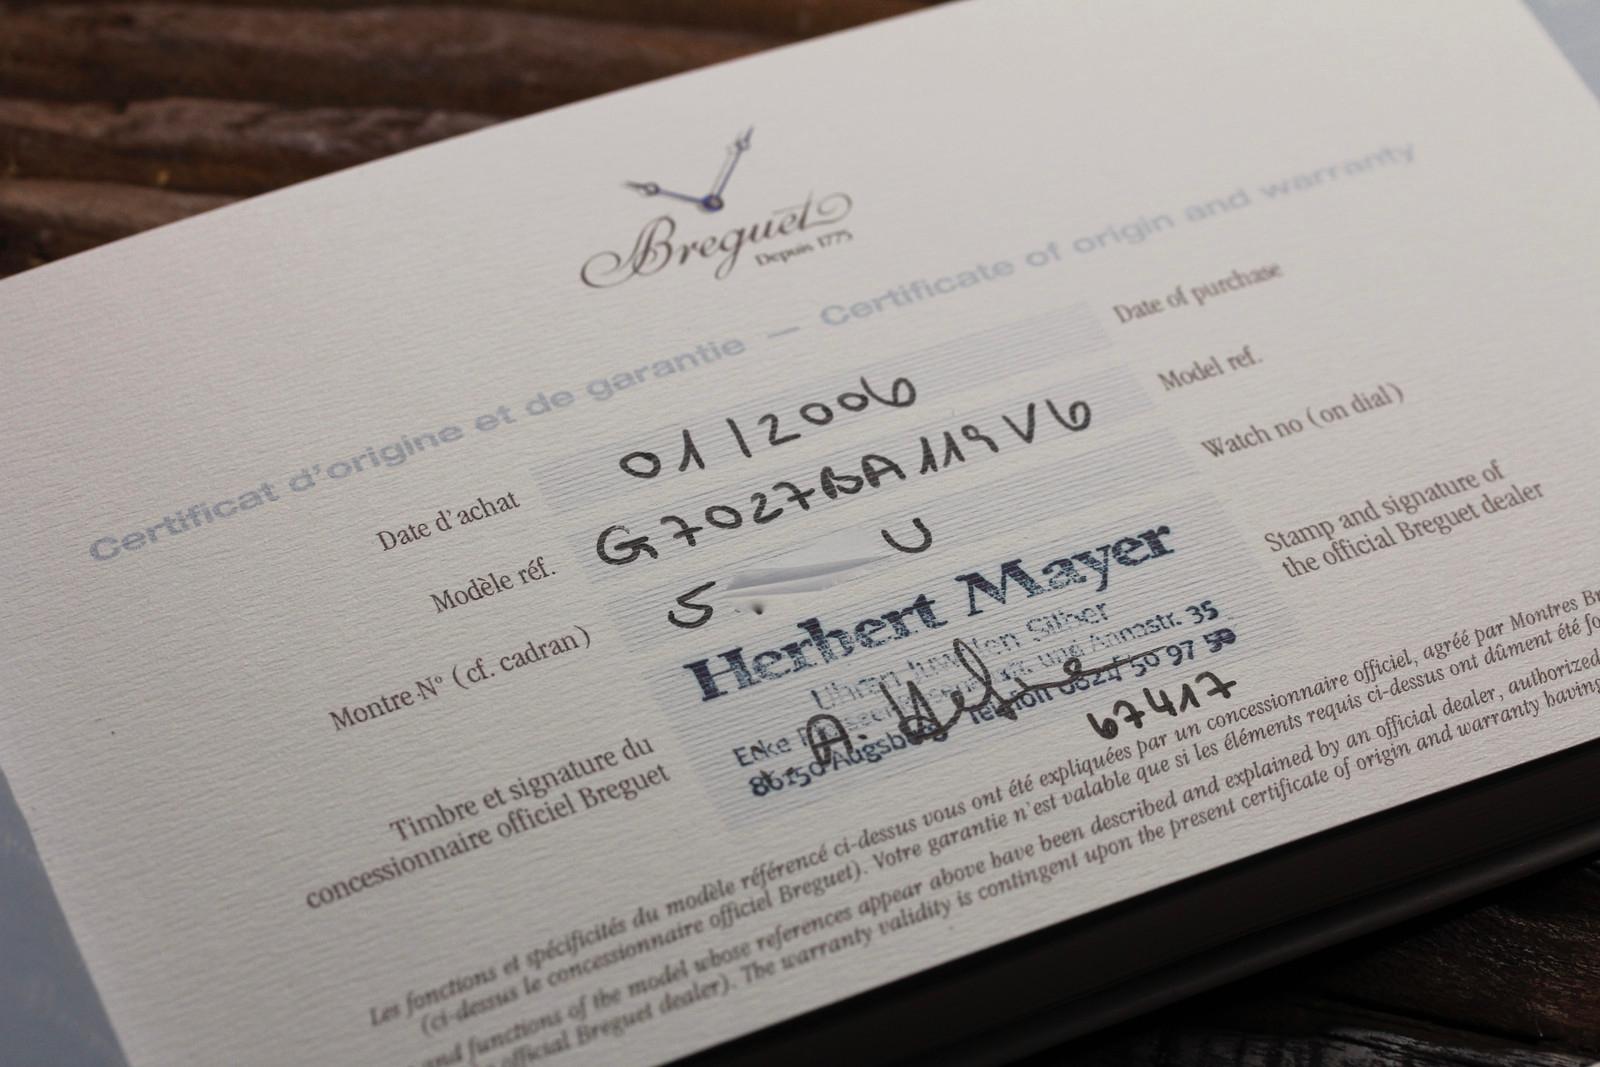 Breguet
Depuis 1775
Certificat d'origine et de garantie — Certificate of origin and warranty
Date d'achat 01/2006 Date of purchase
Modèle réf. G7027BA119V6 Model ref.
Montre N° (cf. cadran) 5 U Watch no (on dial)
Timbre et signature du
concessionnaire officiel Breguet
Herbert Mayer
Uhren Juwelen Silber
Ecke und Annastr. 35
86150 Augsburg Telefon 0821/50 97 50
A.
67417
Stamp and signature of
the official Breguet dealer
Les fonctions et spécificités du modèle référencé ci-dessus vous ont été expliquées par un concessionnaire officiel, agréé par Montres
(ci-dessus le concessionnaire officiel Breguet). Votre garantie n'est valable que si les éléments requis ci-dessus ont dûment été
and functions of the model whose references appear above have been described and explained by an official dealer, authorized
official Breguet dealer). The warranty validity is contingent upon the present certificate of origin and warranty having